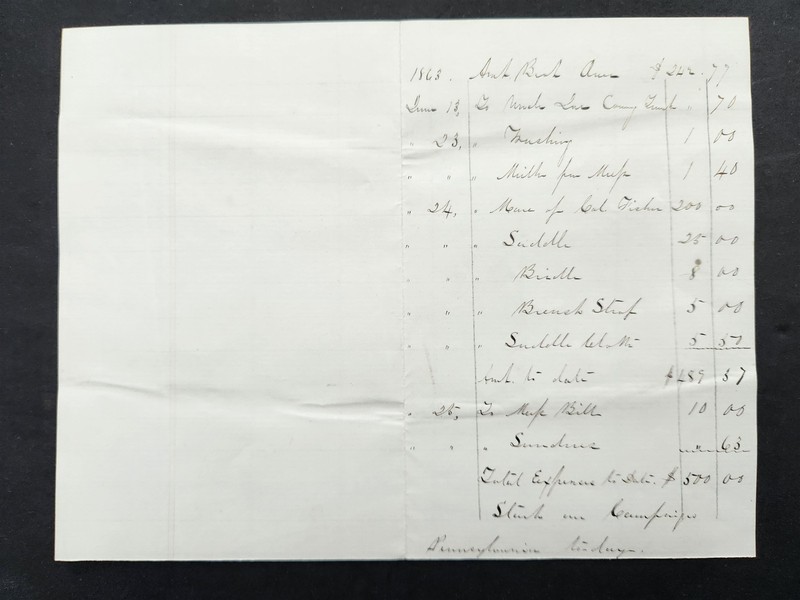 1863. Amt Brt Over $ 242.77
June 18, To Wash Tax Comg Tent " 70
" 23, " Washing 1 00
" " " Milk for Mess 1 40
" 24, " Mare of Col Fisher 200 00
" " " Saddle 25 00
" " " Bridle 8 00
" " " Breast Strap 5 00
" " " Saddle Cloth 5 50
Amt. to date $ 489 37
" 25, To Mess Bill 10 00
" " " Sundries " 63
Total Expenses to Date. $ 500 00
Start on Campaign
Pennsylvania to-day.